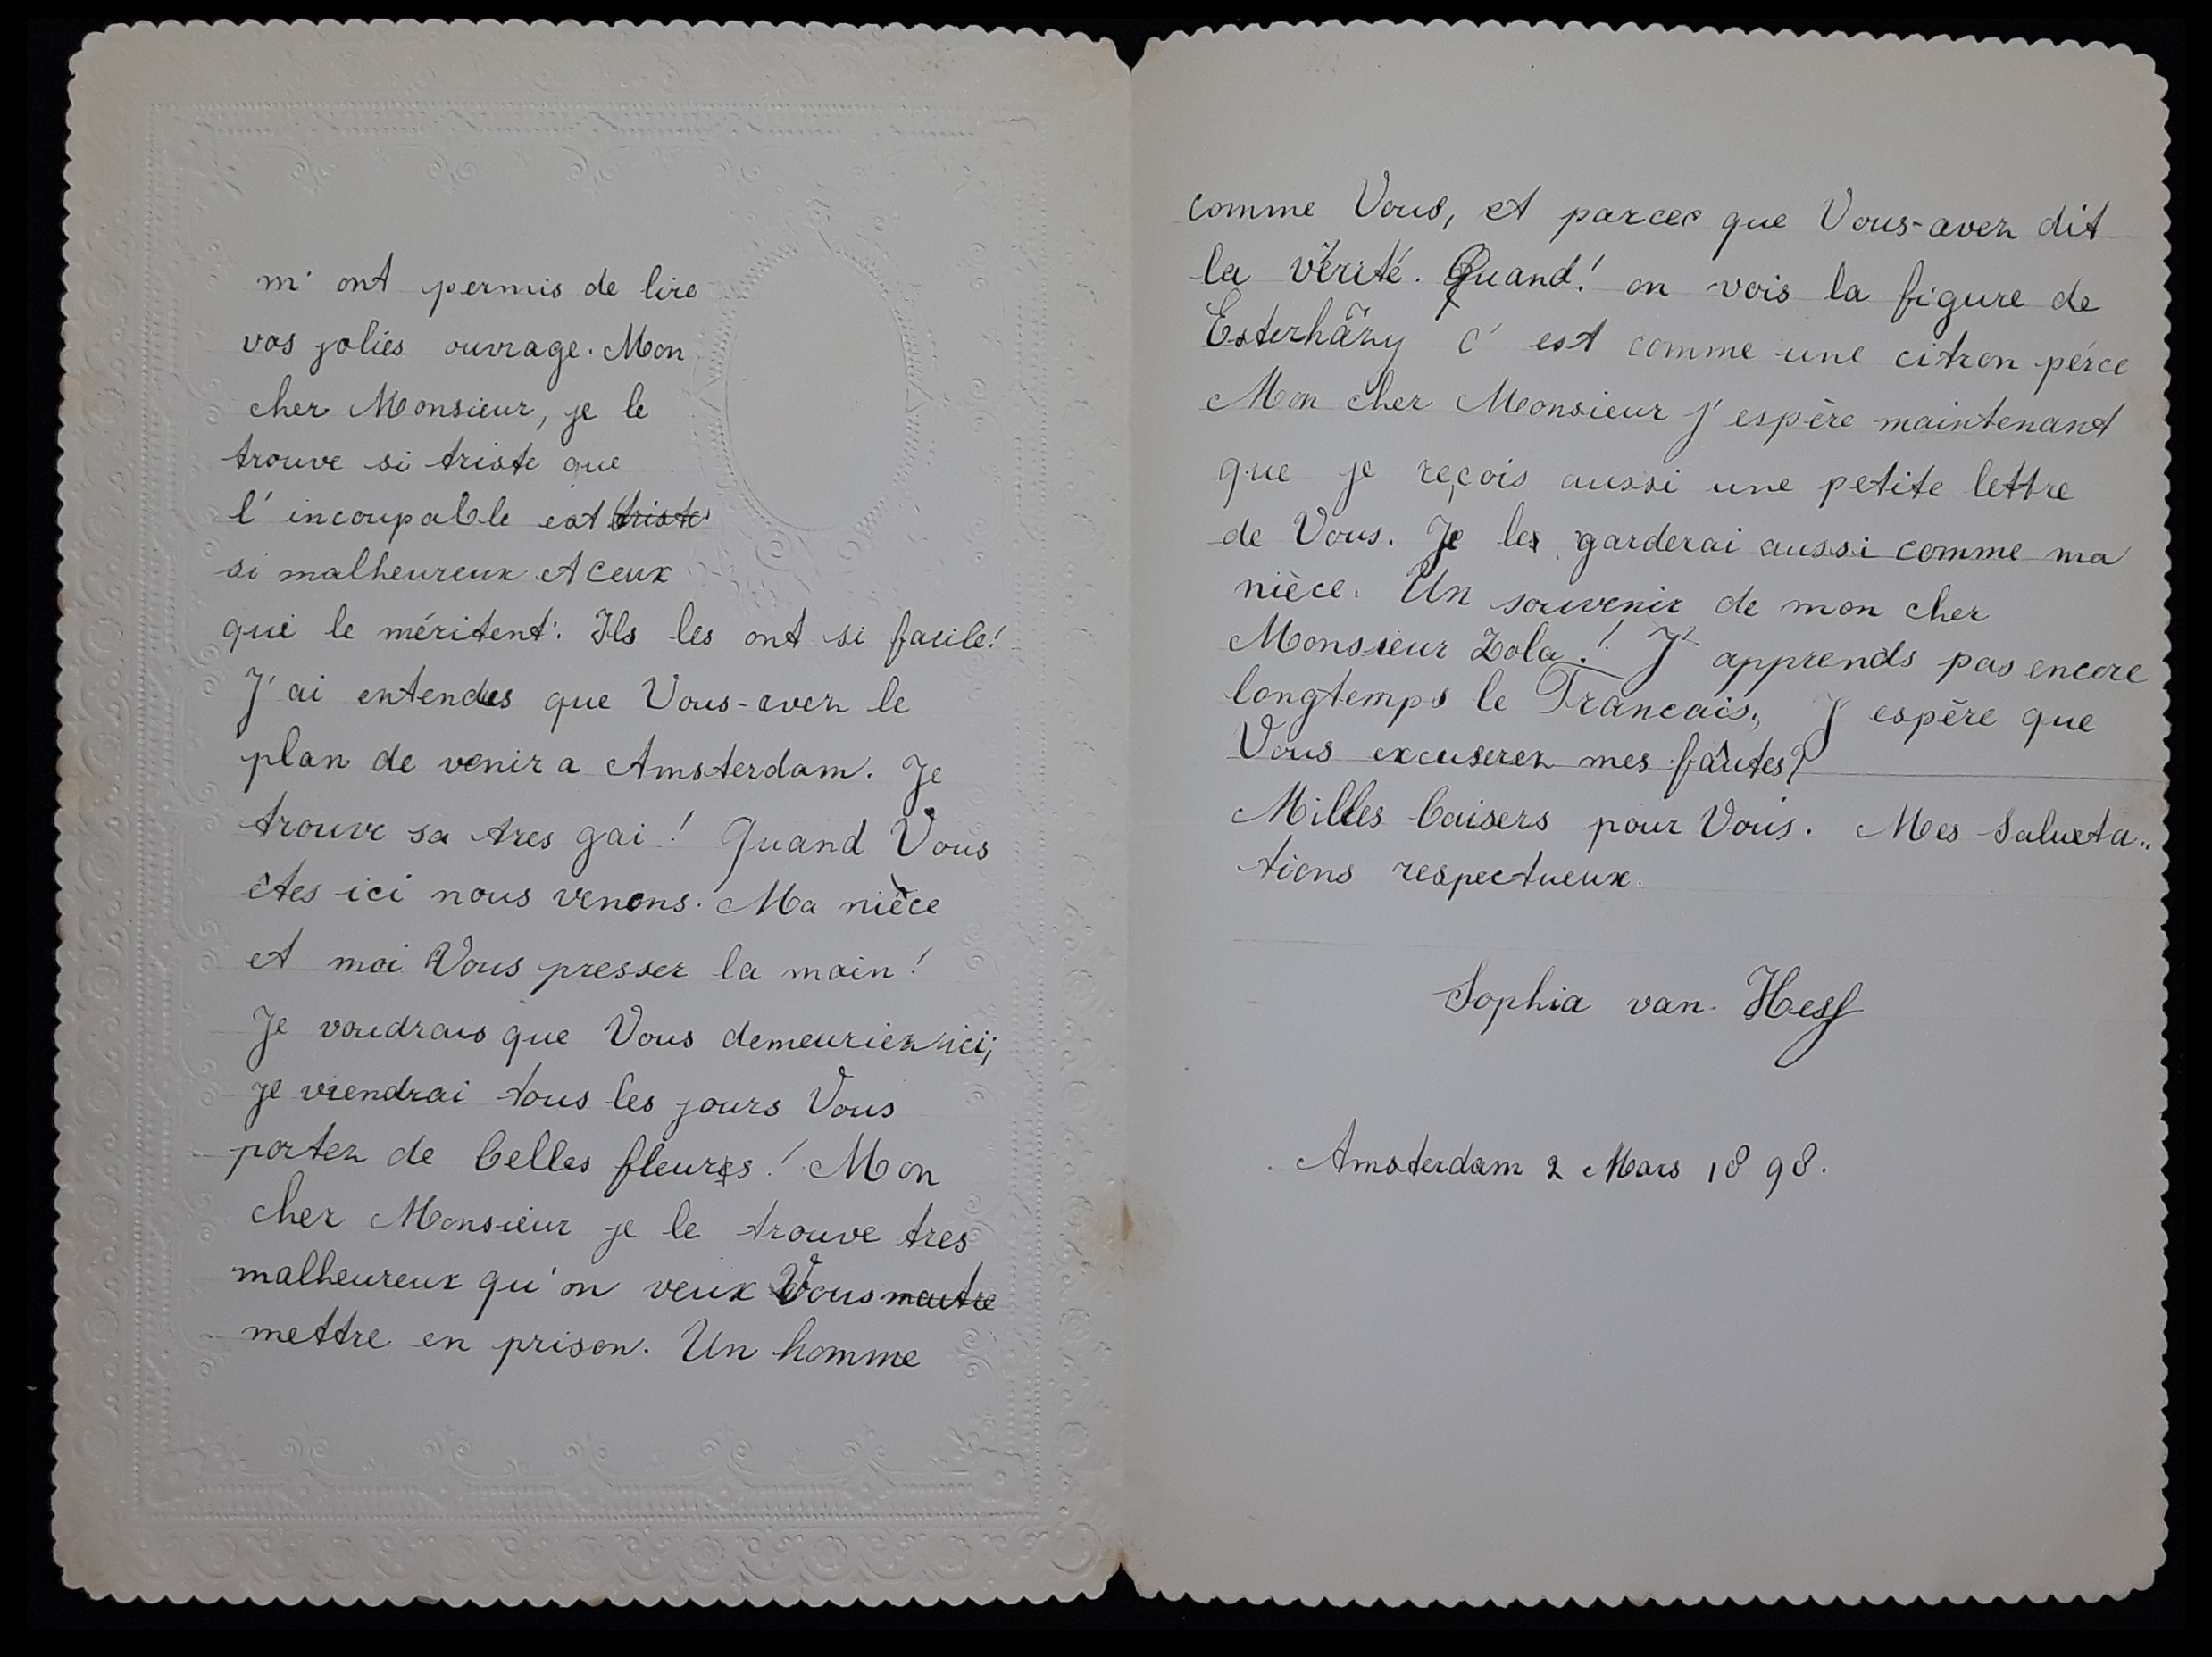 m' ont permis de lire
vos joliés ouvrage. Mon
cher Monsieur, je le
trouve si triste que
l' incoupable est triste
si malheureux et ceux
qui le méritent. Ils les ont si facile!
J' ai entendus que Vous-avez le
plan de venir a Amsterdam. Je
trouve sa tres gai! Quand Vous
êtes ici nous venons. Ma nièce
et moi Vous presser la main!
Je voudrais que Vous demeuriez ici;
je viendrai tous les jours Vous
portez de belles fleurs! Mon
cher Monsieur je le trouve tres
malheureux qu' on veux Vous
mettre en prison. Un homme
comme Vous, et parce que Vous-avez dit
la vérité. Quand! on vois la figure de
Esterházy c' est comme une citron pérce
Mon cher Monsieur j' espère maintenant
que je reçois aussi une petite lettre
de Vous. Je les garderai aussi comme ma
nièce. Un souvenir de mon cher
Monsieur Zola! J' apprends pas encore
longtemps le Francais, J' espère que
Vous excuserez mes fautes?
Milles baisers pour Vous. Mes Saluta„
tions respectueux.
Sophia van
Amsterdam 2 Mars 1898.